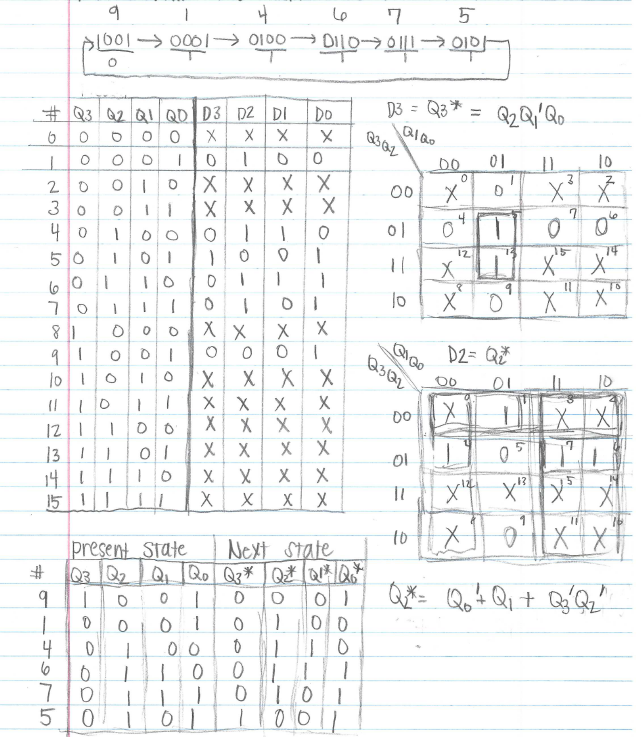 9 1 4 6 7 5
1001 → 0001 → 0100 → 0110 → 0111 → 0101
0 1 1 1 1 1
# Q3 Q2 Q1 Q0 D3 D2 D1 D0
0 0 0 0 0 X X X X
1 0 0 0 1 0 1 0 0
2 0 0 1 0 X X X X
3 0 0 1 1 X X X X
4 0 1 0 0 0 1 1 0
5 0 1 0 1 1 0 0 1
6 0 1 1 0 0 1 1 1
7 0 1 1 1 0 1 0 1
8 1 0 0 0 X X X X
9 1 0 0 1 0 0 0 1
10 1 0 1 0 X X X X
11 1 0 1 1 X X X X
12 1 1 0 0 X X X X
13 1 1 0 1 X X X X
14 1 1 1 0 X X X X
15 1 1 1 1 X X X X
D3 = Q3* = Q2Q1'Q0
Q1Q0
Q3Q2
00 01 11 10
00 X0 01 X3 X2
01 04 15 07 06
11 X12 113 X15 X14
10 X8 09 X11 X10
D2 = Q2*
Q1Q0
Q3Q2
00 01 11 10
00 X0 11 X3 X2
01 14 05 17 16
11 X12 X13 X15 X14
10 X8 09 X11 X10
Q2* = Q0' + Q1 + Q3'Q2'
Present State Next State
# Q3 Q2 Q1 Q0 Q3* Q2* Q1* Q0*
9 1 0 0 1 0 0 0 1
1 0 0 0 1 0 1 0 0
4 0 1 0 0 0 1 1 0
6 0 1 1 0 0 1 1 1
7 0 1 1 1 0 1 0 1
5 0 1 0 1 1 0 0 1